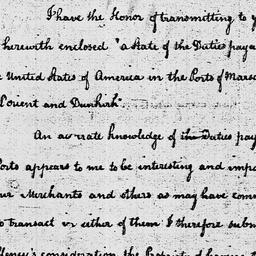 I have the Honor of transmitting to y
herewith enclosed "a state of the Duties paya
United States of America in the Ports of Mars
L'orient and Dunkirk".
An accurate knowledge of the Duties pay
Ports appears to me to be interesting and impo
Merchants and others as may have com
to transact in either of them I therefore subm
consideration the